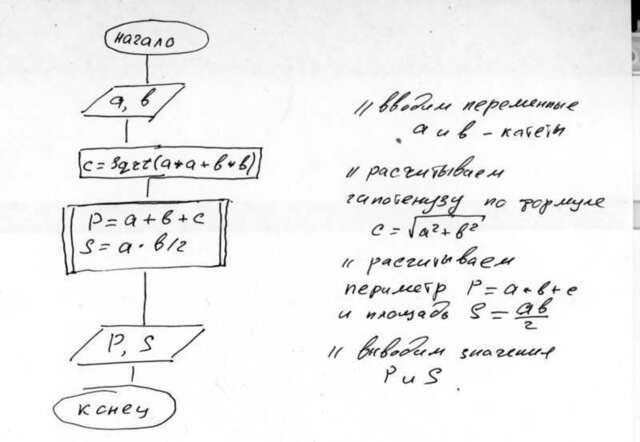 начало
a, в
c = Sqrt(a*a+в*в)
P = a + в + c
S = a * в/2
P, S
конец
// вводим переменные
a и в – катеты
// расчитываем
гапотенузу по формуле
c = √a²+в²
// расчитываем
периметр P = a+в+c
и площадь S = aв/2
// выводим значения
P и S.